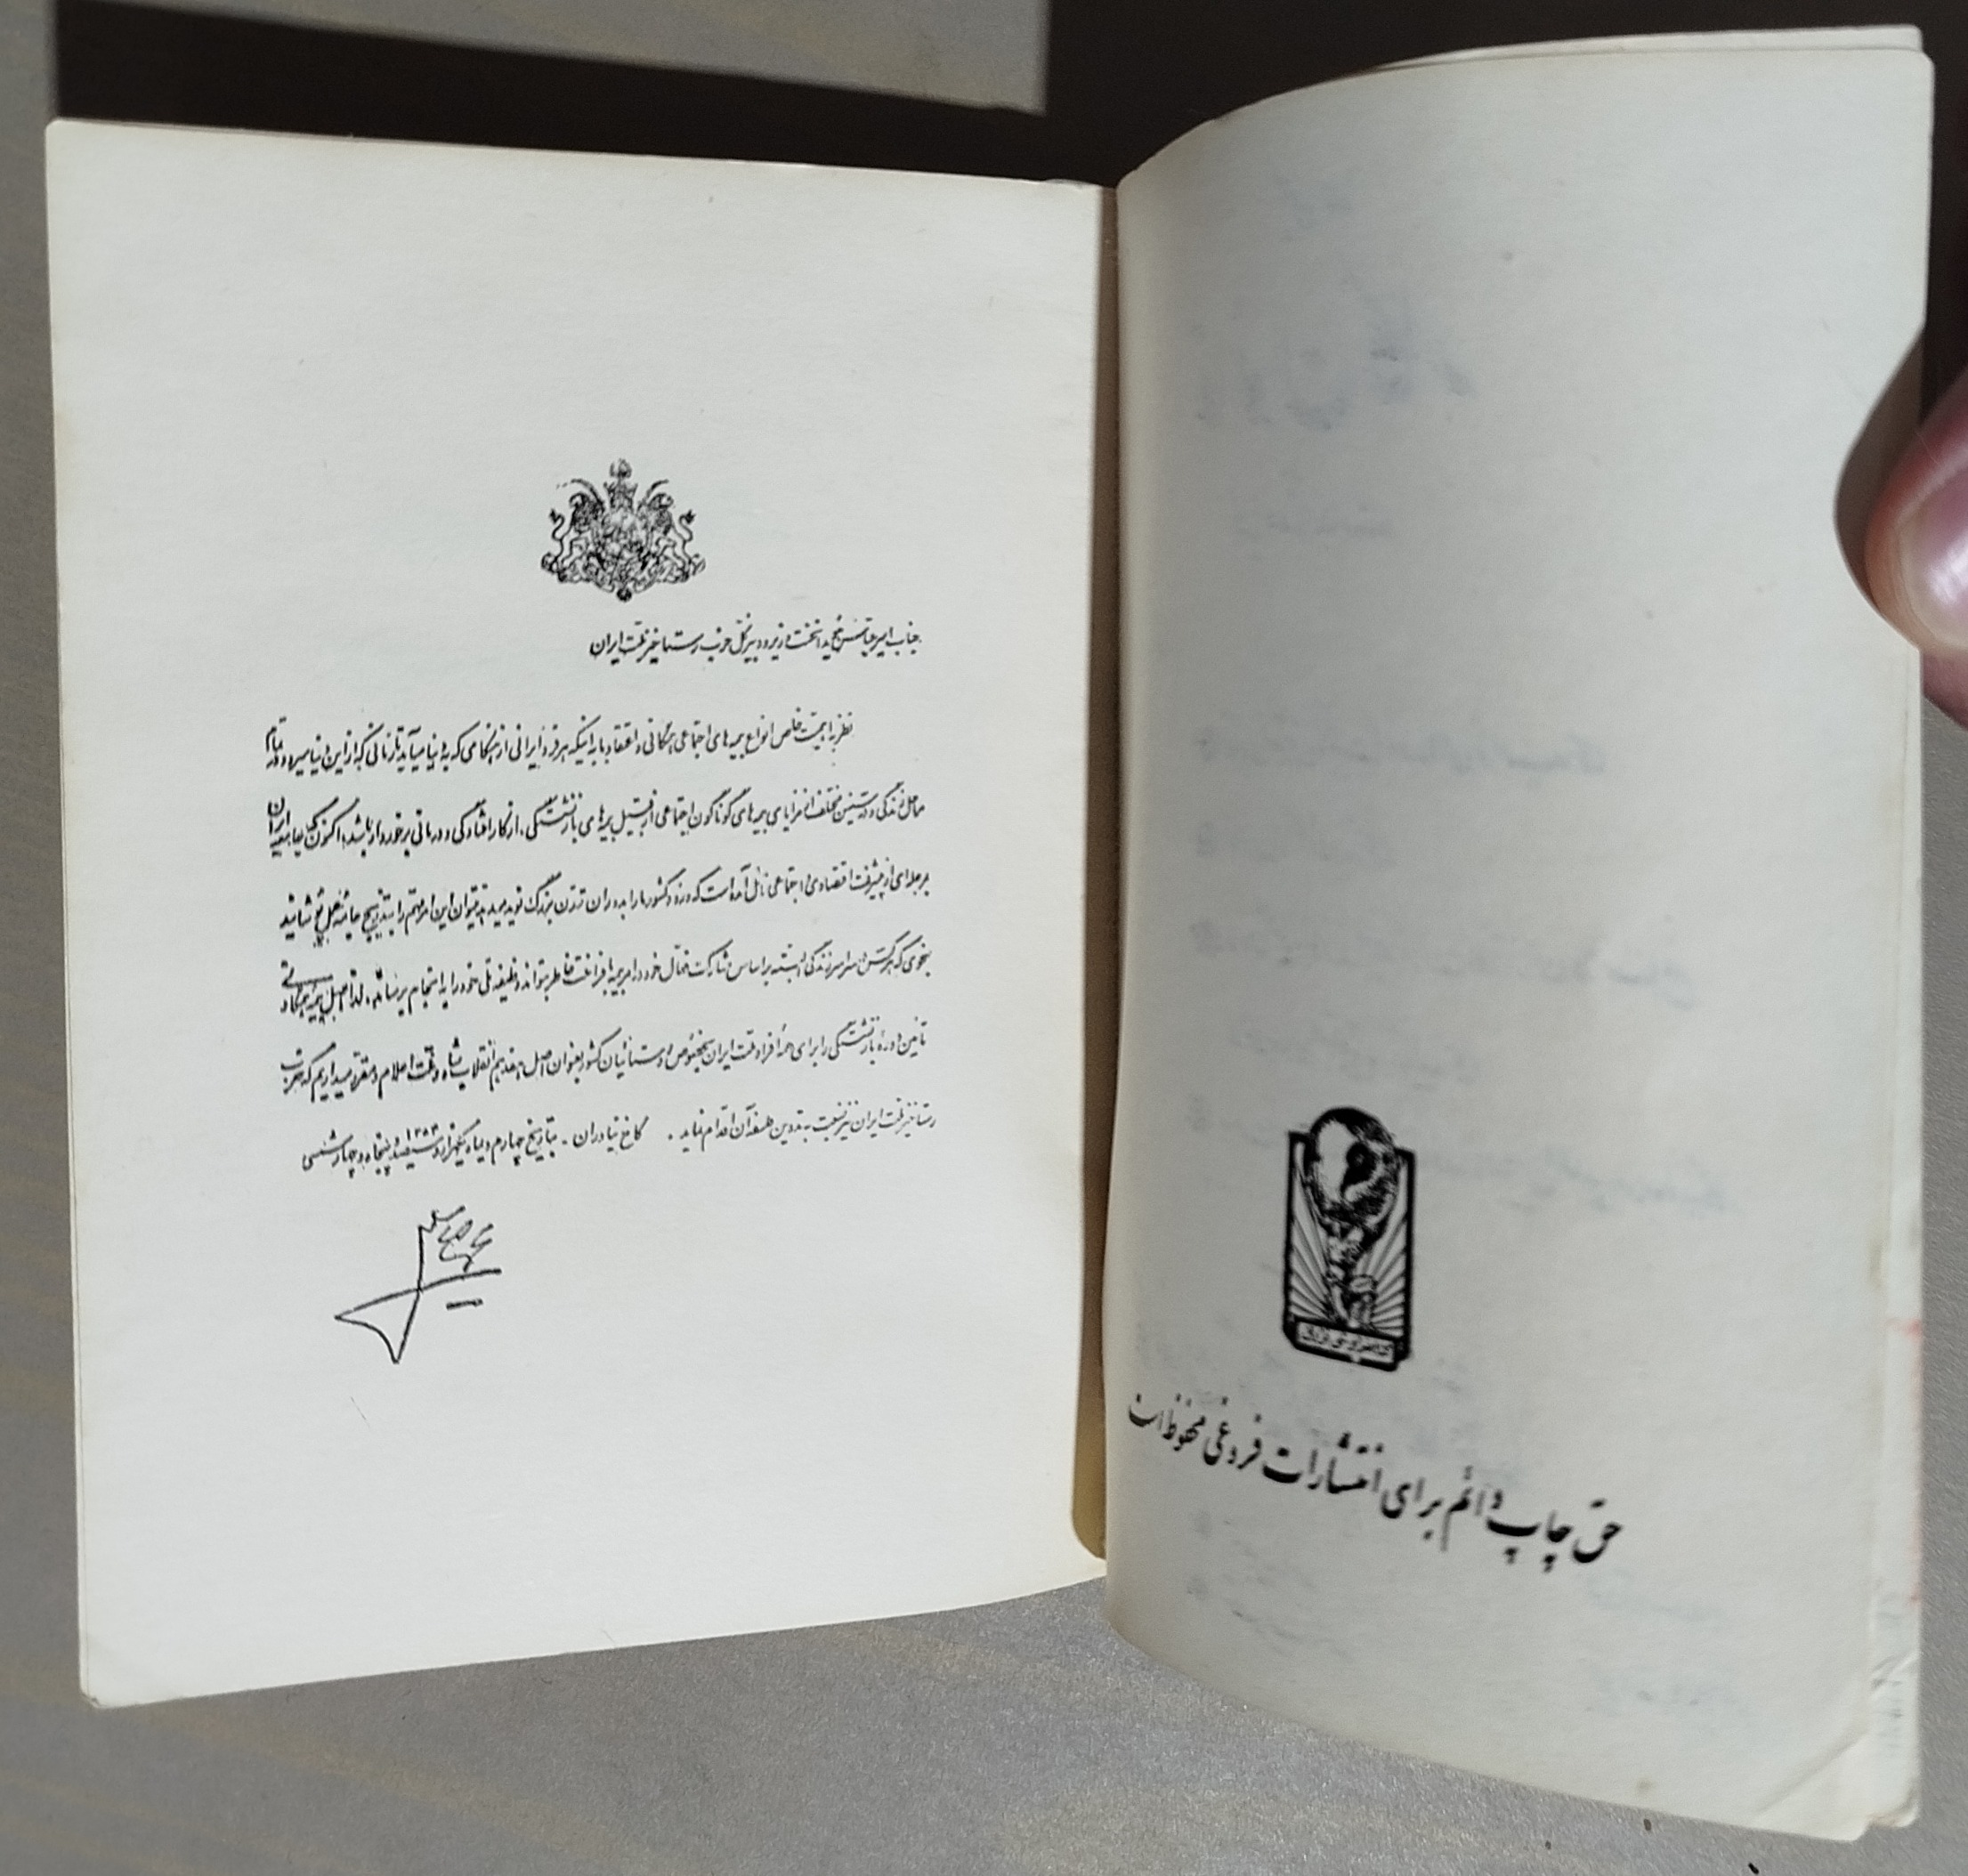 جناب امیرعباس هویدا نخست وزیر و دبیر کل حزب رستاخیز ملت ایران
نظر به اهمیت خاص انواع بیمه های اجتماعی همگانی و اعتقاد ما به اینکه هر فرد ایرانی از هنگامی که به دنیا میآید تا زمانی که از این دنیا میرود در تمام
مراحل زندگی و در سنین مختلف از مزایای بیمه های گوناگون اجتماعی از قبیل بیمه های بازنشستگی، از کارافتادگی و درمانی برخوردار باشد، اکنون که جامعه ایران
به مرحله ای از پیشرفت اقتصادی و اجتماعی نائل آمده است که ورود کشور ما را به دوران تمدن بزرگ نوید میدهد میتوان این امر مهم را بتدریج جامه عمل پوشانید
بنحوی که هر کس در سراسر زندگی البته بر اساس مشارکت فعال خود در امر بیمه با فراغت خاطر بتواند وظیفه ملی خود را به انجام برساند. لذا اصل بیمه همگانی و
تأمین دوره بازنشستگی را برای همه افراد ملت ایران بخصوص روستائیان کشور بعنوان اصل هفدهم انقلاب شاه و ملت اعلام و مقرر میداریم که حزب
رستاخیز ملت ایران نیز نسبت به تدوین فلسفه آن اقدام نماید. کاخ نیاوران - بتاریخ چهارم دیماه یکهزار و سیصد و پنجاه و چهار شمسی
حق چاپ دائم برای انتشارات فروغی محفوظ است